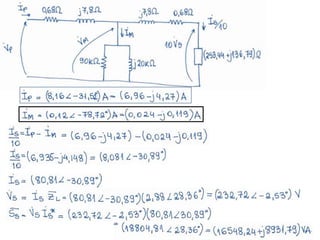 İp 0,68Ω j7,8Ω j7,8Ω 0,68Ω İs/10
V̇p V̇M İM 10V̇s (259,74+j136,79)Ω
90kΩ j20kΩ
İp = (8,16∠-31,52°)A = (6,96-j4,27)A
İM = (0,12∠-78,72°)A = (0,024-j0,119)A
İs/10 = İp - İM = (6,96-j4,27) - (0,024-j0,119)
İs/10 = (6,935-j4,148) = (8,081∠-30,89°)
İs = (80,81∠-30,89°)
V̇s = İs Z̄L = (80,81∠-30,89°)(2,88∠28,36°) = (232,72∠-2,53°) V
S̄s = V̇s İs* = (232,72∠-2,53°)(80,81∠30,89°)
= (18804,81∠28,36°) = (16548,24+j8931,79) VA